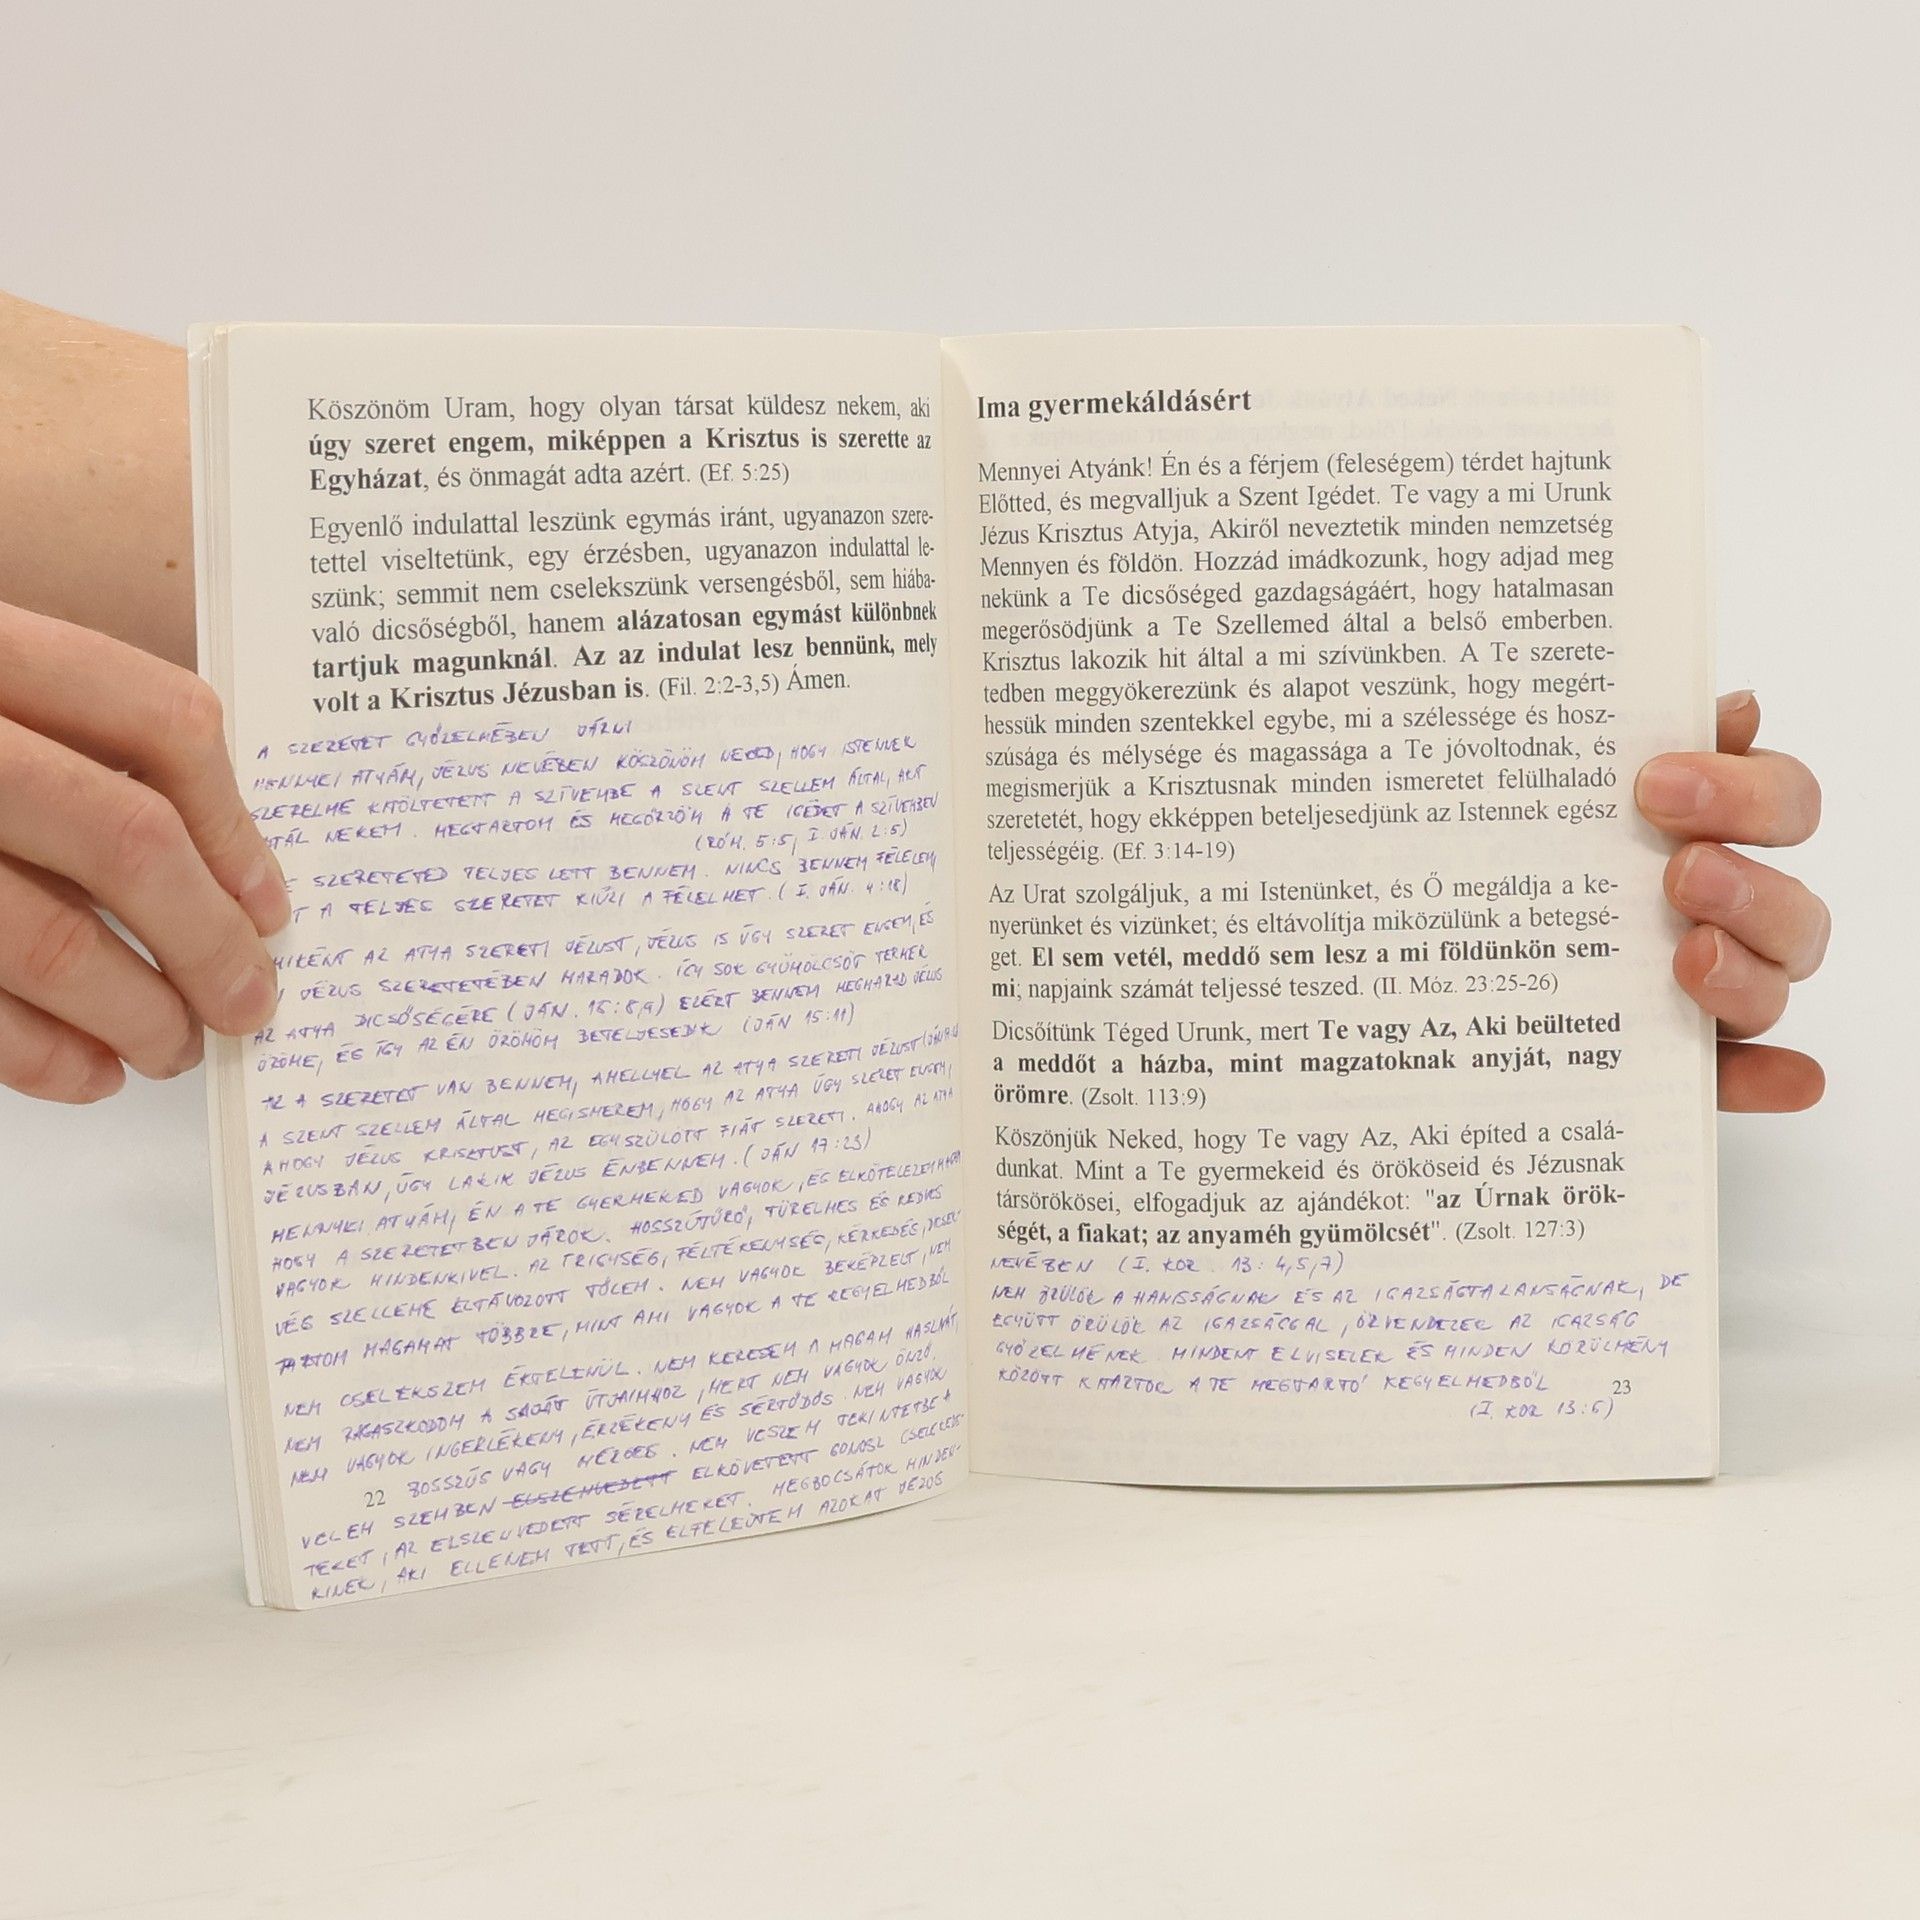 Köszönöm Uram, hogy olyan társat küldesz nekem, aki
úgy szeret engem, miképpen a Krisztus is szerette az
Egyházat, és önmagát adta azért. (Ef. 5:25)
Egyenlő indulattal leszünk egymás iránt, ugyanazon szere-
tettel viseltetünk, egy érzésben, ugyanazon indulattal le-
szünk; semmit nem cselekszünk versengésből, sem hiába-
való dicsőségből, hanem alázatosan egymást különbnek
tartjuk magunknál. Az az indulat lesz bennünk, mely
volt a Krisztus Jézusban is. (Fil. 2:2-3,5) Ámen.
A SZERETET GYŐZELMÉBEN JÁRNI
MENNYEI ATYÁM, JÉZUS NEVÉBEN KÖSZÖNÖM NEKED, HOGY ISTENNEK
SZERELME KITÖLTETETT A SZÍVEMBE A SZENT SZELLEM ÁLTAL, AKIT
NEKEM. MEGTARTOM ÉS MEGŐRZÖM A TE IGÉDET A SZÍVEMBEN
(RÓM. 5:5, I. JÁN. 2:5)
SZERETETED TELJES LETT BENNEM. NINCS BENNEM FÉLELEM,
A TELJES SZERETET KIŰZI A FÉLELMET. (I. JÁN. 4:18)
MIKÉNT AZ ATYA SZERETI JÉZUST, JÉZUS IS ÚGY SZERET ENGEM, ÉS
JÉZUS SZERETETÉBEN MARADOK. ÍGY SOK GYÜMÖLCSÖT TERMEK
AZ ATYA DICSŐSÉGÉRE (JÁN. 15:8,9) EZÉRT BENNEM MEGMARAD JÉZUS
ÖRÖME, ÉS ÍGY AZ ÉN ÖRÖMÖM BETELJESEDIK (JÁN 15:11)
AZ A SZERETET VAN BENNEM, AMELLYEL AZ ATYA SZERETI JÉZUST
A SZENT SZELLEM ÁLTAL MEGISMEREM, HOGY AZ ATYA ÚGY SZERET ENGEM,
AHOGY JÉZUS KRISZTUST, AZ EGYSZÜLÖTT FIÁT SZERETI. AHOGY AZ ATYA
JÉZUSBAN, ÚGY LAKIK JÉZUS ÉNBENNEM. (JÁN 17:23)
MENNYEI ATYÁM, ÉN A TE GYERMEKED VAGYOK, ÉS ELKÖTELEZEM MAGAM
HOGY A SZERETETBEN JÁROK. HOSSZÚTŰRŐ, TÜRELMES ÉS KEDVES
VAGYOK MINDENKIVEL. AZ IRIGYSÉG, FÉLTÉKENYSÉG, KÉRKEDÉS,
VÉG SZELLEME ELTÁVOZOTT TŐLEM. NEM VAGYOK BEKÉPZELT, NEM
TARTOM MAGAMAT TÖBBRE, MINT AMI VAGYOK A TE KEGYELMEDBŐL
NEM CSELEKSZEM ÉKTELENÜL. NEM KERESEM A MAGAM HASZNÁT,
NEM RAGASZKODOM A SAJÁT ÚTJAIMHOZ, MERT NEM VAGYOK ÖNZŐ.
NEM VAGYOK INGERLÉKENY, ÉRZÉKENY ÉS SÉRTŐDŐS. NEM VAGYOK
BOSSZÚS VAGY MÉRGES. NEM VESZEM TEKINTETBE A
22
VELEM SZEMBEN ELSZENVEDETT ELKÖVETETT GONOSZ CSELEKEDE-
TEKET, AZ ELSZENVEDETT SÉRELMEKET. MEGBOCSÁTOK MINDEN-
KINEK, AKI ELLENEM TETT, ÉS ELFELEJTEM AZOKAT JÉZUS
Ima gyermekáldásért
Mennyei Atyánk! Én és a férjem (feleségem) térdet hajtunk
Előtted, és megvalljuk a Szent Igédet. Te vagy a mi Urunk
Jézus Krisztus Atyja, Akiről neveztetik minden nemzetség
Mennyen és földön. Hozzád imádkozunk, hogy adjad meg
nekünk a Te dicsőséged gazdagságáért, hogy hatalmasan
megerősödjünk a Te Szellemed által a belső emberben.
Krisztus lakozik hit által a mi szívünkben. A Te szerete-
tedben meggyökerezünk és alapot veszünk, hogy megért-
hessük minden szentekkel egybe, mi a szélessége és hosz-
szúsága és mélysége és magassága a Te jóvoltodnak, és
megismerjük a Krisztusnak minden ismeretet felülhaladó
szeretetét, hogy ekképpen beteljesedjünk az Istennek egész
teljességéig. (Ef. 3:14-19)
Az Urat szolgáljuk, a mi Istenünket, és Ő megáldja a ke-
nyerünket és vizünket; és eltávolítja miközülünk a betegsé-
get. El sem vetél, meddő sem lesz a mi földünkön sem-
mi; napjaink számát teljessé teszed. (II. Móz. 23:25-26)
Dicsőítünk Téged Urunk, mert Te vagy Az, Aki beülteted
a meddőt a házba, mint magzatoknak anyját, nagy
örömre. (Zsolt. 113:9)
Köszönjük Neked, hogy Te vagy Az, Aki építed a csalá-
dunkat. Mint a Te gyermekeid és örököseid és Jézusnak
társörökösei, elfogadjuk az ajándékot: "az Úrnak örök-
ségét, a fiakat; az anyaméh gyümölcsét". (Zsolt. 127:3)
NEVÉBEN (I. KOR. 13:4,5,7)
NEM ÖRÜLÖK A HAMISSÁGNAK ÉS AZ IGAZSÁGTALANSÁGNAK, DE
EGYÜTT ÖRÜLÖK AZ IGAZSÁGGAL, ÖRVENDEZEK AZ IGAZSÁG
GYŐZELMÉNEK. MINDENT ELVISELEK ÉS MINDEN KÖRÜLMÉNY
KÖZÖTT KITARTOK A TE MEGTARTÓ KEGYELMEDBŐL
23
(I. KOR 13:6)